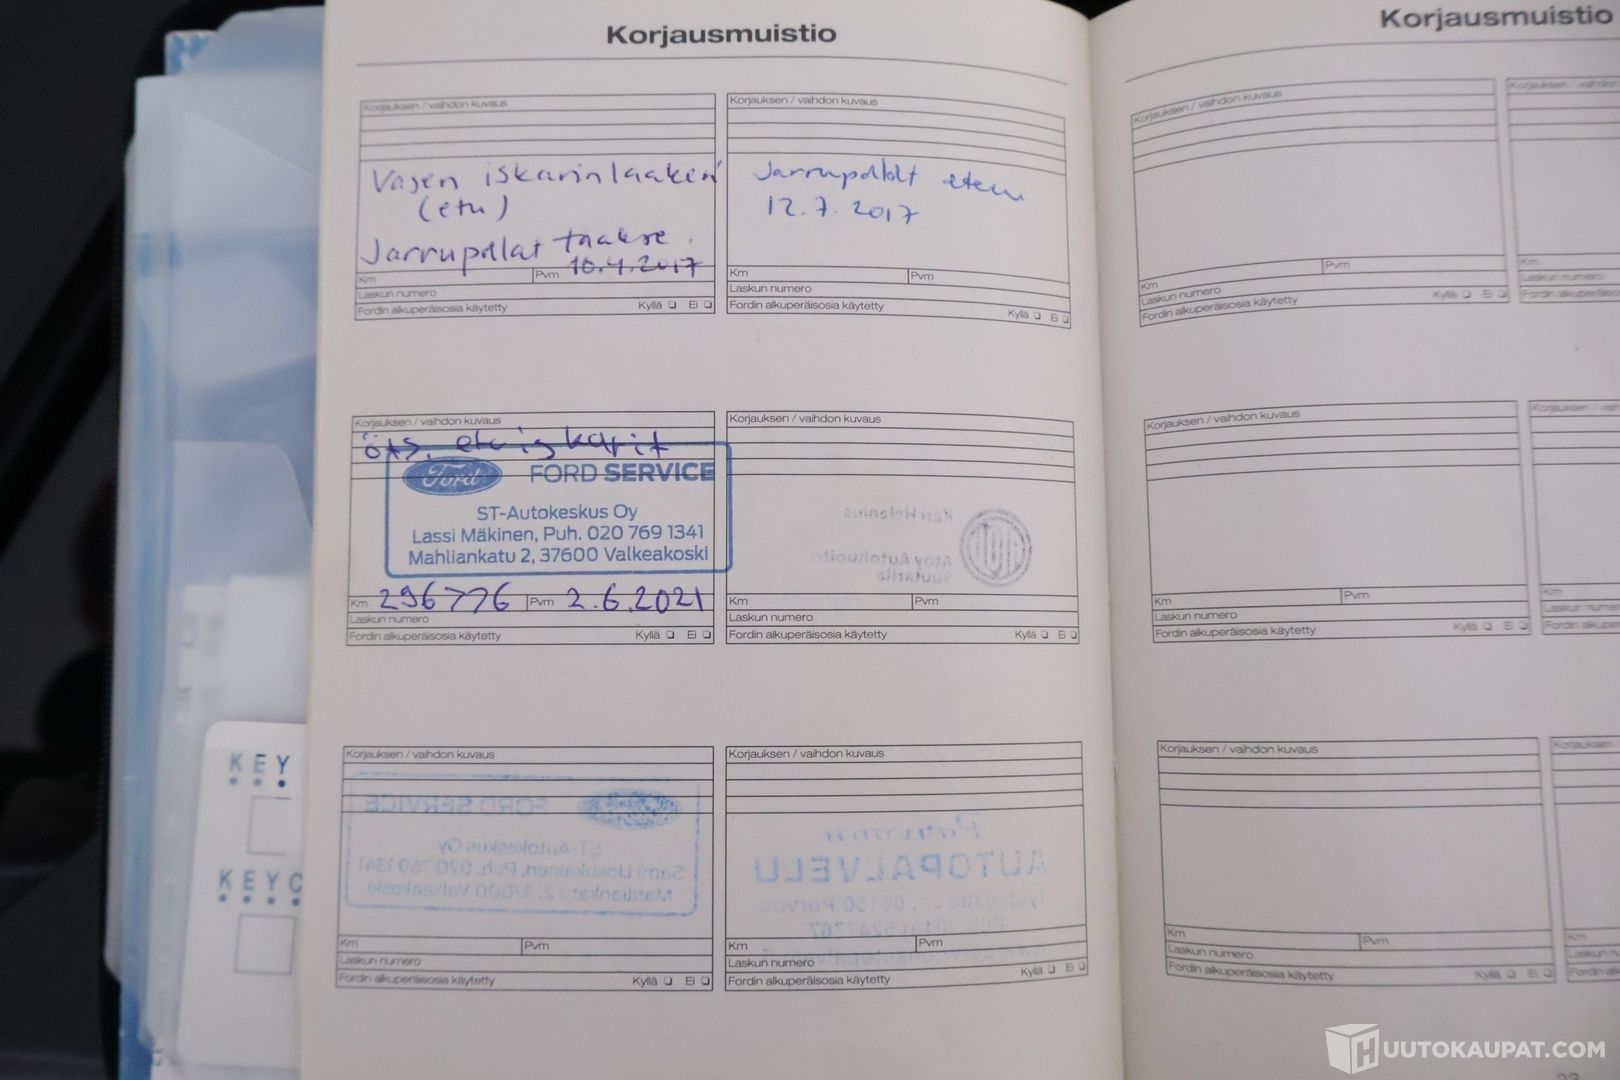 Korjausmuistio
Korjauksen / vaihdon kuvaus
Vasen iskarinlaakeri
(etu)
Jarrupalat taakse.
Km
Pvm 10.4.2017
Laskun numero
Fordin alkuperäisosia käytetty Kyllä Ei
Korjauksen / vaihdon kuvaus
Jarrupalat eteen
12.7.2017
Km
Pvm
Laskun numero
Fordin alkuperäisosia käytetty Kyllä Ei
Korjauksen / vaihdon kuvaus
etuiskarit
Ford FORD SERVICE
ST-Autokeskus Oy
Lassi Mäkinen, Puh. 020 769 1341
Mahliankatu 2, 37600 Valkeakoski
Km 296776 Pvm 2.6.2021
Laskun numero
Fordin alkuperäisosia käytetty Kyllä Ei
Korjauksen / vaihdon kuvaus
Kari Helenius
Atoy Autohuolto
Suutarila
Km
Pvm
Laskun numero
Fordin alkuperäisosia käytetty Kyllä Ei
Korjauksen / vaihdon kuvaus
FORD SERVICE
ST-Autokeskus Oy
Sami Uusukainen, Puh. 020 769 1341
Mahliankatu 2, 37600 Valkeakoski
Km
Pvm
Laskun numero
Fordin alkuperäisosia käytetty Kyllä Ei
Korjauksen / vaihdon kuvaus
AUTOPALVELU
06150 Porvoo
Km
Pvm
Laskun numero
Fordin alkuperäisosia käytetty Kyllä Ei
Korjausmuistio
Korjauksen / vaihdon kuvaus
Km
Pvm
Laskun numero
Fordin alkuperäisosia käytetty Kyllä Ei
Korjauksen / vaihdon kuvaus
Km
Pvm
Laskun numero
Fordin alkuperäisosia käytetty Kyllä Ei
Korjauksen / vaihdon kuvaus
Km
Pvm
Laskun numero
Fordin alkuperäisosia käytetty Kyllä Ei
KEY
KEYC
HUUTOKAUPAT.COM